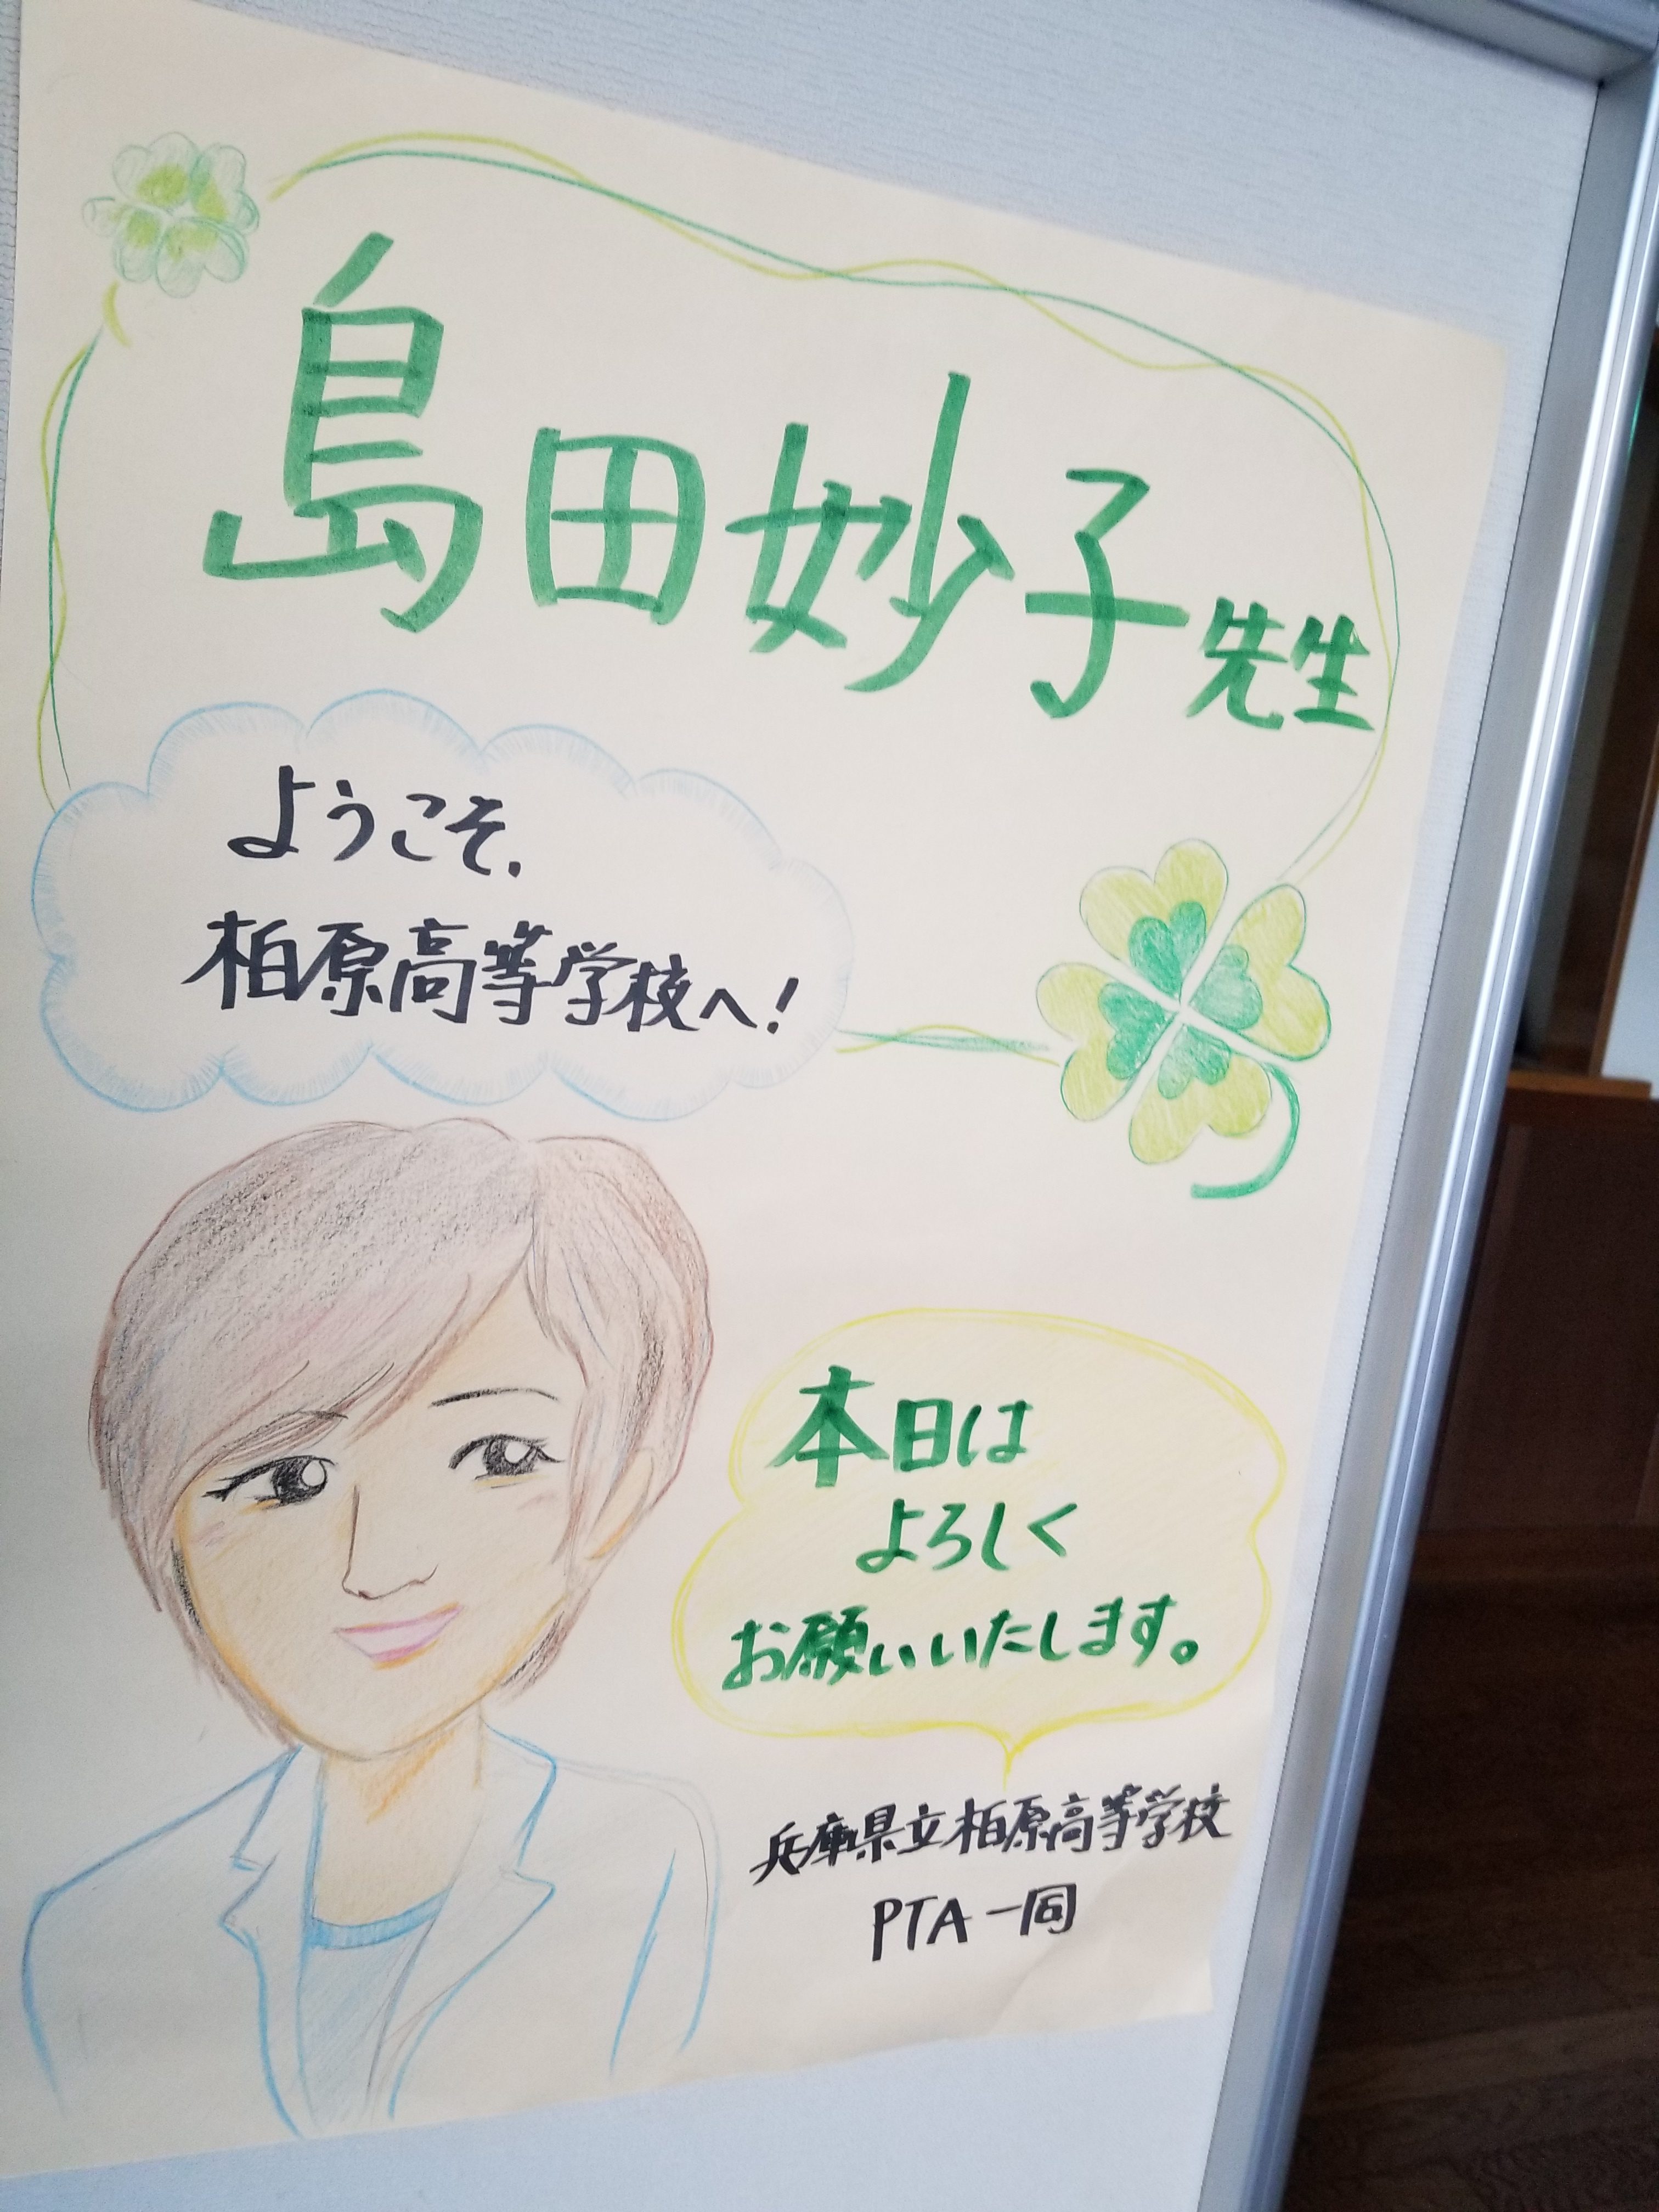 島田妙子先生
ようこそ、
柏原高等学校へ!
本日は
よろしく
お願いいたします。
兵庫県立柏原高等学校
PTA一同